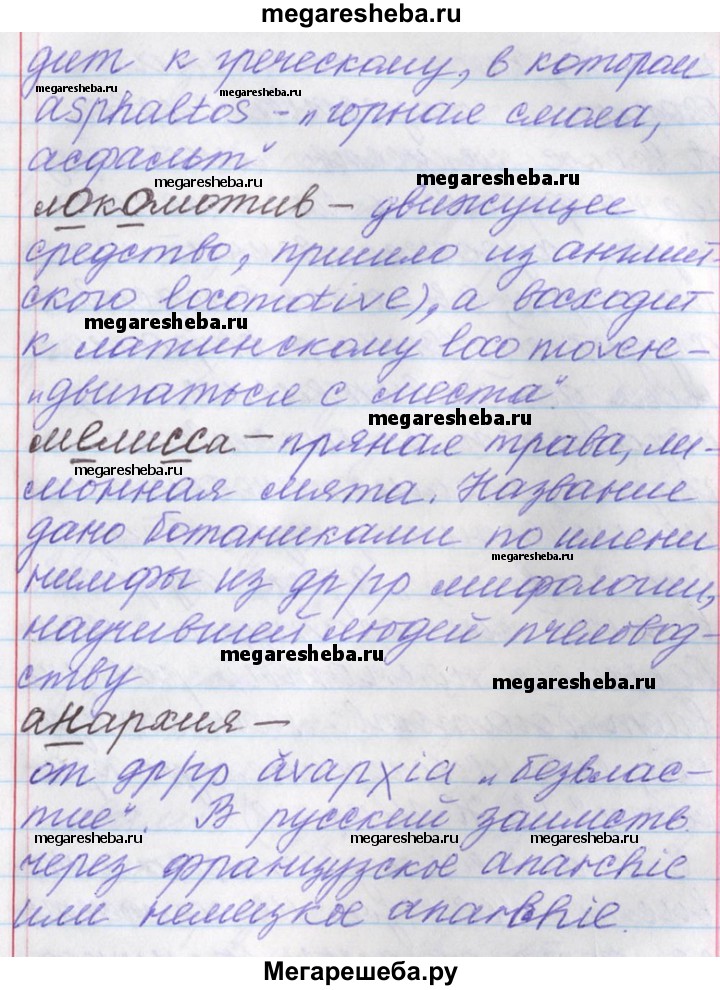 megaresheba.ru
дит к греческому, в котором
megaresheba.ru megaresheba.ru
asphaltos - „горная смола,
асфальт"
megaresheba.ru megaresheba.ru
локомотив - движущее
средство, пришло из англий-
ского locomotive), а восходит
megaresheba.ru
к латинскому loco movere -
„двигаться с места".
megaresheba.ru
мелисса - пряная трава, ли-
megaresheba.ru
монная мята. Название
дано ботаниками по имени
megaresheba.ru
нимфы из др/гр мифологии,
научившей людей пчеловод-
megaresheba.ru
ству
megaresheba.ru
анархия -
от др/гр ἀναρχία „безвлас-
тие". В русский заимств.
megaresheba.ru megaresheba.ru megaresheba.ru
через французское anarchie
или немецкое anarchie.
Мегарешеба.ру